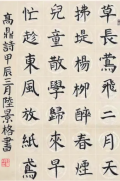 草長鶯飛二月天
拂堤楊柳醉春煙
兒童散學歸來早
忙趁東風放紙鳶
高鼎詩甲辰三月陸景格書